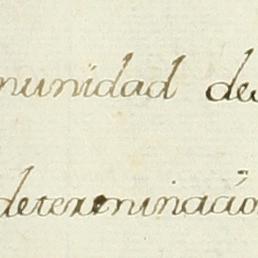 munidad des
determinación